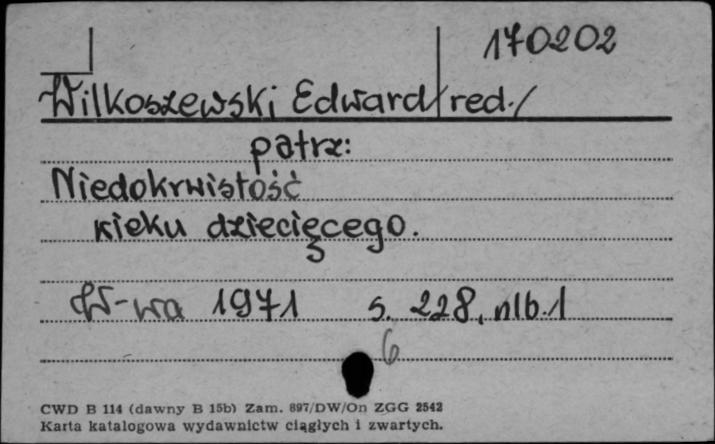 170202
Wilkoszewski Edward /red./
patrz:
Niedokrwistość
wieku dziecięcego.
W-wa 1971 s. 228, nlb. 1
6
CWD B 114 (dawny B 15b) Zam. 897/DW/On ZGG 2542
Karta katalogowa wydawnictw ciągłych i zwartych.